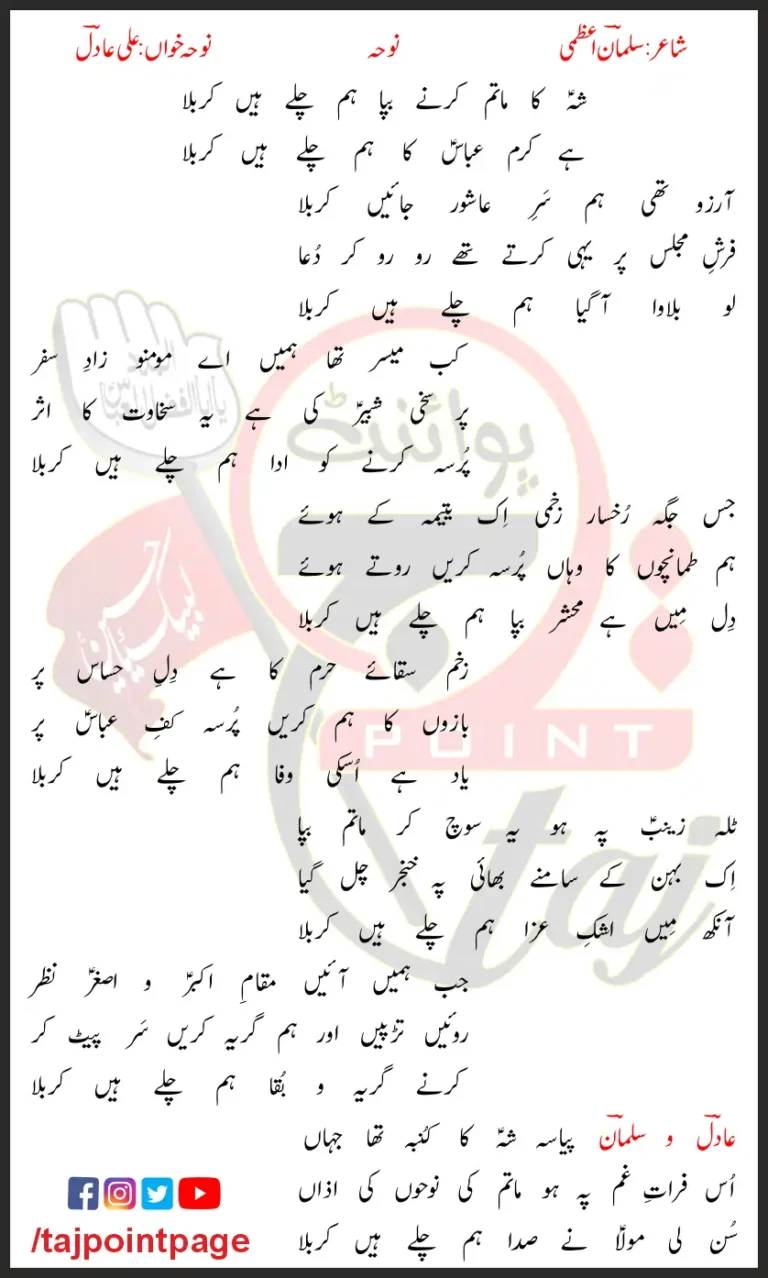 شاعر: سلمانؔ اعظمی نوحہ نوحہ خواں: علی عادلؔ
شہؑ کا ماتم کرنے بپا ہم چلے ہیں کربلا
ہے کرم عباسؑ کا ہم چلے ہیں کربلا
آرزو تھی ہم سَرِ عاشور جائیں کربلا
فرشِ مجلس پر یہی کرتے تھے رو رو کر دُعا
لو بلاوا آگیا ہم چلے ہیں کربلا
کب میسر تھا ہمیں اے مومنو زادِ سفر
پر سخی شبیرؑ کی ہے یہ سخاوت کا اثر
پُرسہ کرنے کو ادا ہم چلے ہیں کربلا
جس جگہ رُخسار زخمی اِک یتیمہ کے ہوئے
ہم طمانچوں کا وہاں پُرسہ کریں روتے ہوئے
دِل مِیں ہے محشر بپا ہم چلے ہیں کربلا
زخم سقائے حرم کا ہے دِلِ حساس پر
بازوں کا ہم کریں پُرسہ کفِ عباسؑ پر
یاد ہے اُسکی وفا ہم چلے ہیں کربلا
ٹلہ زینبؑ پہ ہو یہ سوچ کر ماتم بپا
اِک بہن کے سامنے بھائی پہ خنجر چل گیا
آنکھ مِیں اشکِ عزا ہم چلے ہیں کربلا
جب ہمیں آئیں مقامِ اکبرؑ و اصغرؑ نظر
روئیں تڑپیں اور ہم گریہ کریں سَر پیٹ کر
کرنے گریہ و بُقا ہم چلے ہیں کربلا
عادلؔ و سلمانؔ پیاسہ شہؑ کا کنبہ تھا جہاں
اُس فراتِ غم پہ ہو ماتم کی نوحوں کی اذاں
سُن لی مولاؑ نے صدا ہم چلے ہیں کربلا
/tajpointpage
پوائنٹ
POINT
taj
لبیک یا حسینؑ